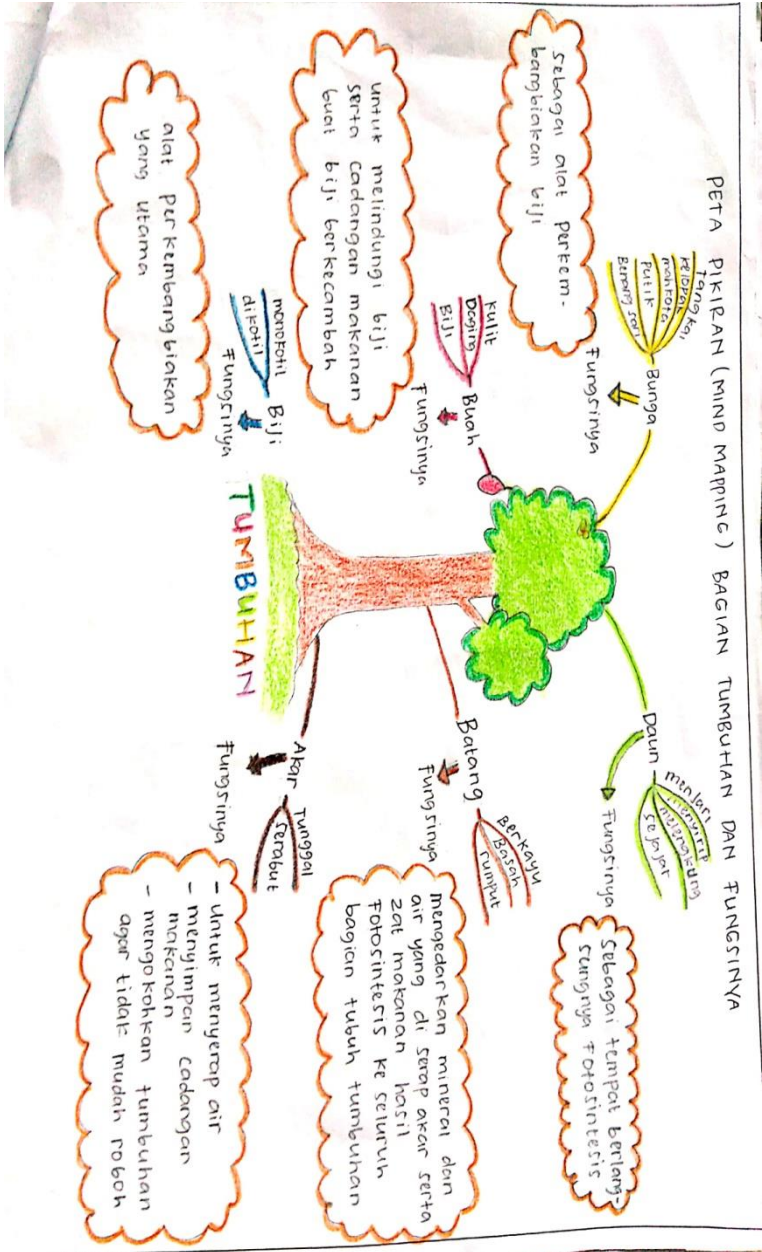 PETA PIKIRAN (MIND MAPPING) BAGIAN TUMBUHAN DAN FUNGSINYA
Tangkai
kelopak
mahkota
Putik
Benang sari
Bunga
Fungsinya
sebagai alat perkem-
bangbiakan biji
kulit
Daging
Biji
Buah
Fungsinya
untuk melindungi biji
serta cadangan makanan
buat biji berkecambah
monokotil
dikotil
Biji
Fungsinya
alat perkembangbiakan
yang utama
Daun
menjari
menyirip
melengkung
sejajar
Fungsinya
sebagai tempat berlang-
sungnya fotosintesis
Batang
Berkayu
Basah
rumput
Fungsinya
mengedarkan mineral dan
air yang di serap akar serta
zat makanan hasil
fotosintesis ke seluruh
bagian tubuh tumbuhan
Akar
Tunggal
serabut
Fungsinya
- untuk menyerap air
- menyimpan cadangan
makanan
- mengokohkan tumbuhan
agar tidak mudah roboh
TUMBUHAN